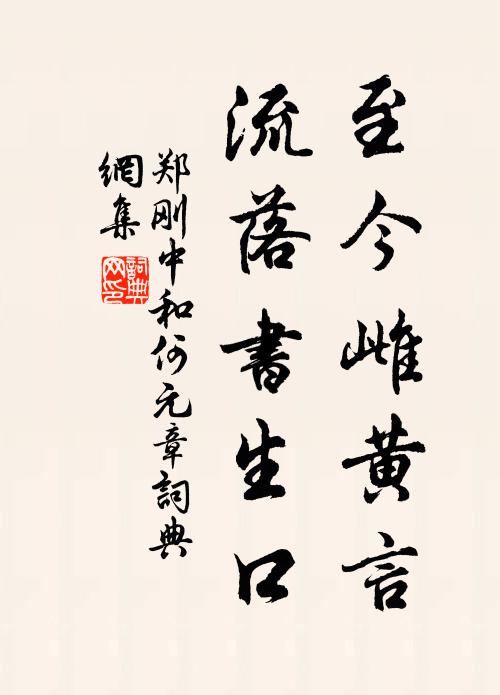 至今雌黄言
流落書生口
郑刚中和何元章詞典
網集
詞典網印